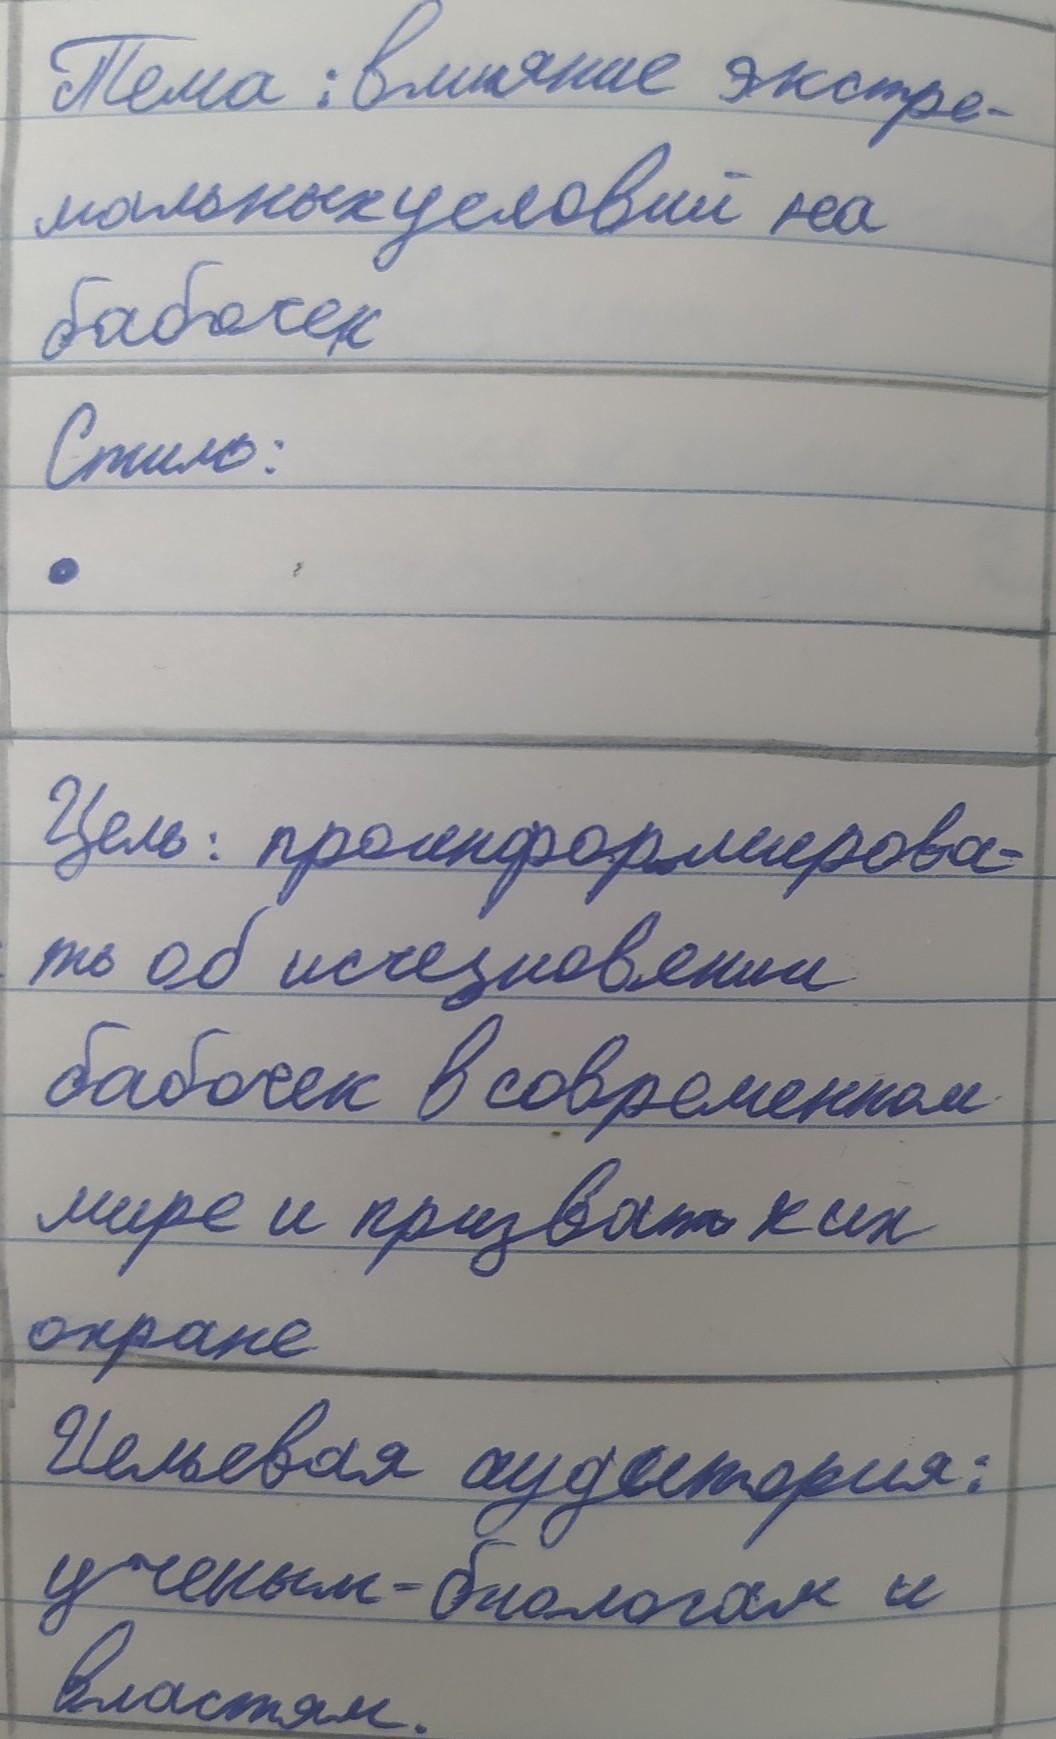 Тема: влияние экстре-
мальных условий на
бабочек
Стиль:
•
Цель: проинформирова-
ть об исчезновении
бабочек в современном
мире и призвать к их
охране
Целевая аудитория:
ученым-биологам и
властям.